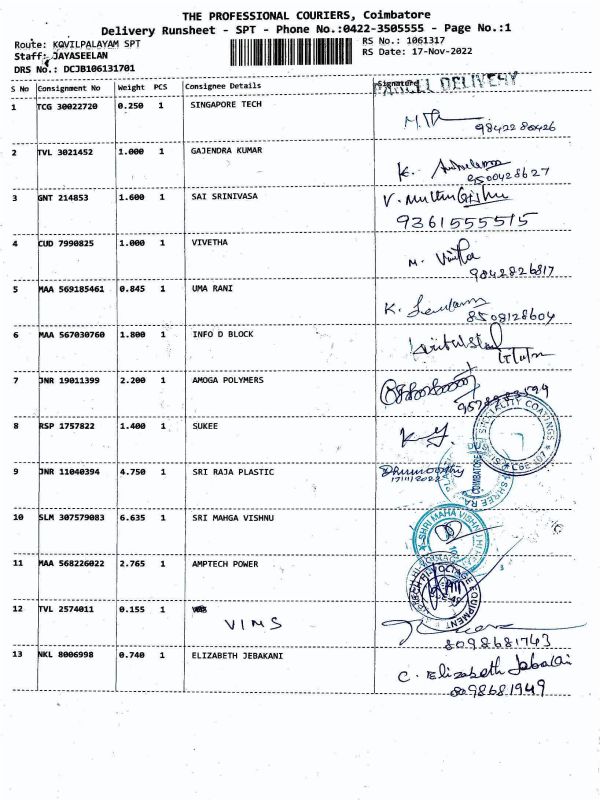 THE PROFESSIONAL COURIERS, Coimbatore
Delivery Runsheet - SPT - Phone No.:0422-3505555 - Page No.:1
Route: KOVILPALAYAM SPT RS No.: 1061317
Staff: JAYASEELAN RS Date: 17-Nov-2022
DRS No.: DCJB106131701
S No Consignment No Weight PCS Consignee Details Signature
PARCEL DELIVERY
1 TCG 30022720 0.250 1 SINGAPORE TECH
9842280426
2 TVL 3021452 1.000 1 GAJENDRA KUMAR
K.
9500428627
3 GNT 214853 1.600 1 SAI SRINIVASA
V.
9361555515
4 CUD 7990825 1.000 1 VIVETHA
M.
9842826817
5 MAA 569185461 0.845 1 UMA RANI
K.
8508128604
6 MAA 567030760 1.800 1 INFO D BLOCK
17/11/22
7 JNR 19011399 2.200 1 AMOGA POLYMERS
8 RSP 1757822 1.400 1 SUKEE
SPECIALITY COATINGS
9 JNR 11040394 4.750 1 SRI RAJA PLASTIC
17/11/2022
COIMBATORE
10 SLM 307579083 6.635 1 SRI MAHGA VISHNU
SHRI MAHA VISHNU
11 MAA 568226022 2.765 1 AMPTECH POWER
12 TVL 2574011 0.155 1
VIMS
8098681743
13 NKL 8006998 0.740 1 ELIZABETH JEBAKANI
C. Elizabeth
8098681949